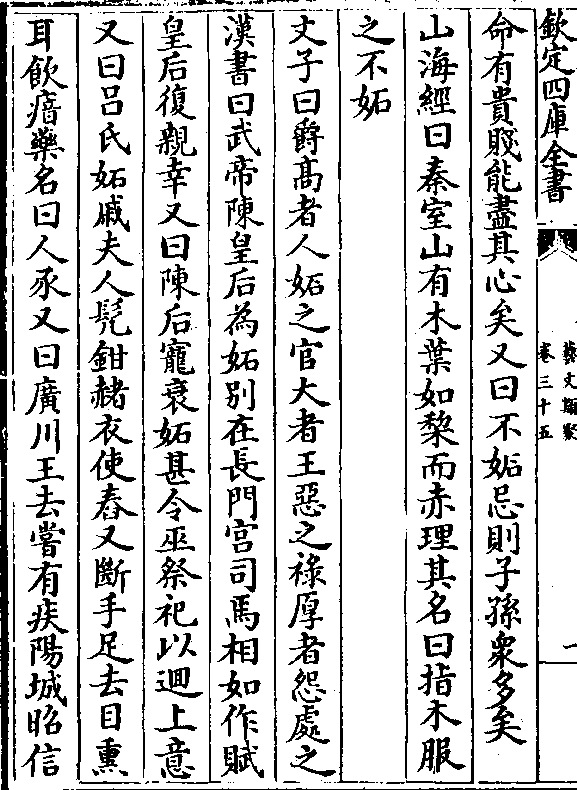 欽定四庫全書
藝文類聚
卷三十五
一
命有貴賤能盡其心矣又曰不妬忌則子孫衆多矣
山海經曰秦室山有木葉如棃而赤理其名曰指木服
之不妬
文子曰爵髙者人妬之官大者王惡之祿厚者怨處之
漢書曰武帝陳皇后為妬别在長門宫司馬相如作賦
皇后復親幸又曰陳后寵衰妬甚令巫祭祀以迴上意
又曰吕氏妬戚夫人髠鉗赭衣使舂又斷手足去目熏
耳飲瘖藥名曰人豕又曰廣川王去嘗有疾陽城昭信